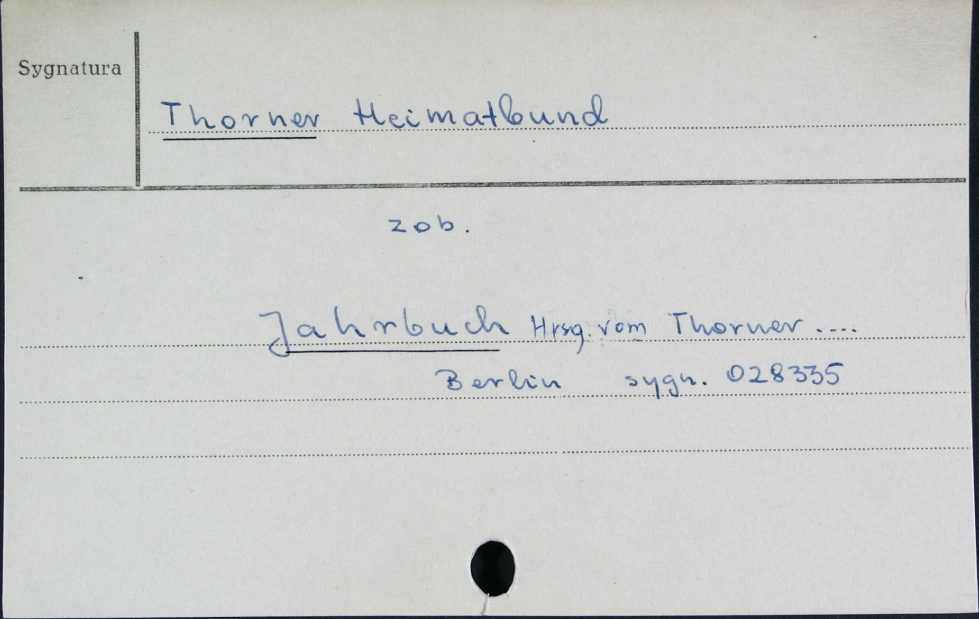 Sygnatura
Thorner Heimatbund
zob.
Jahrbuch Hrsg. vom Thorner ....
Berlin sygn. 028335